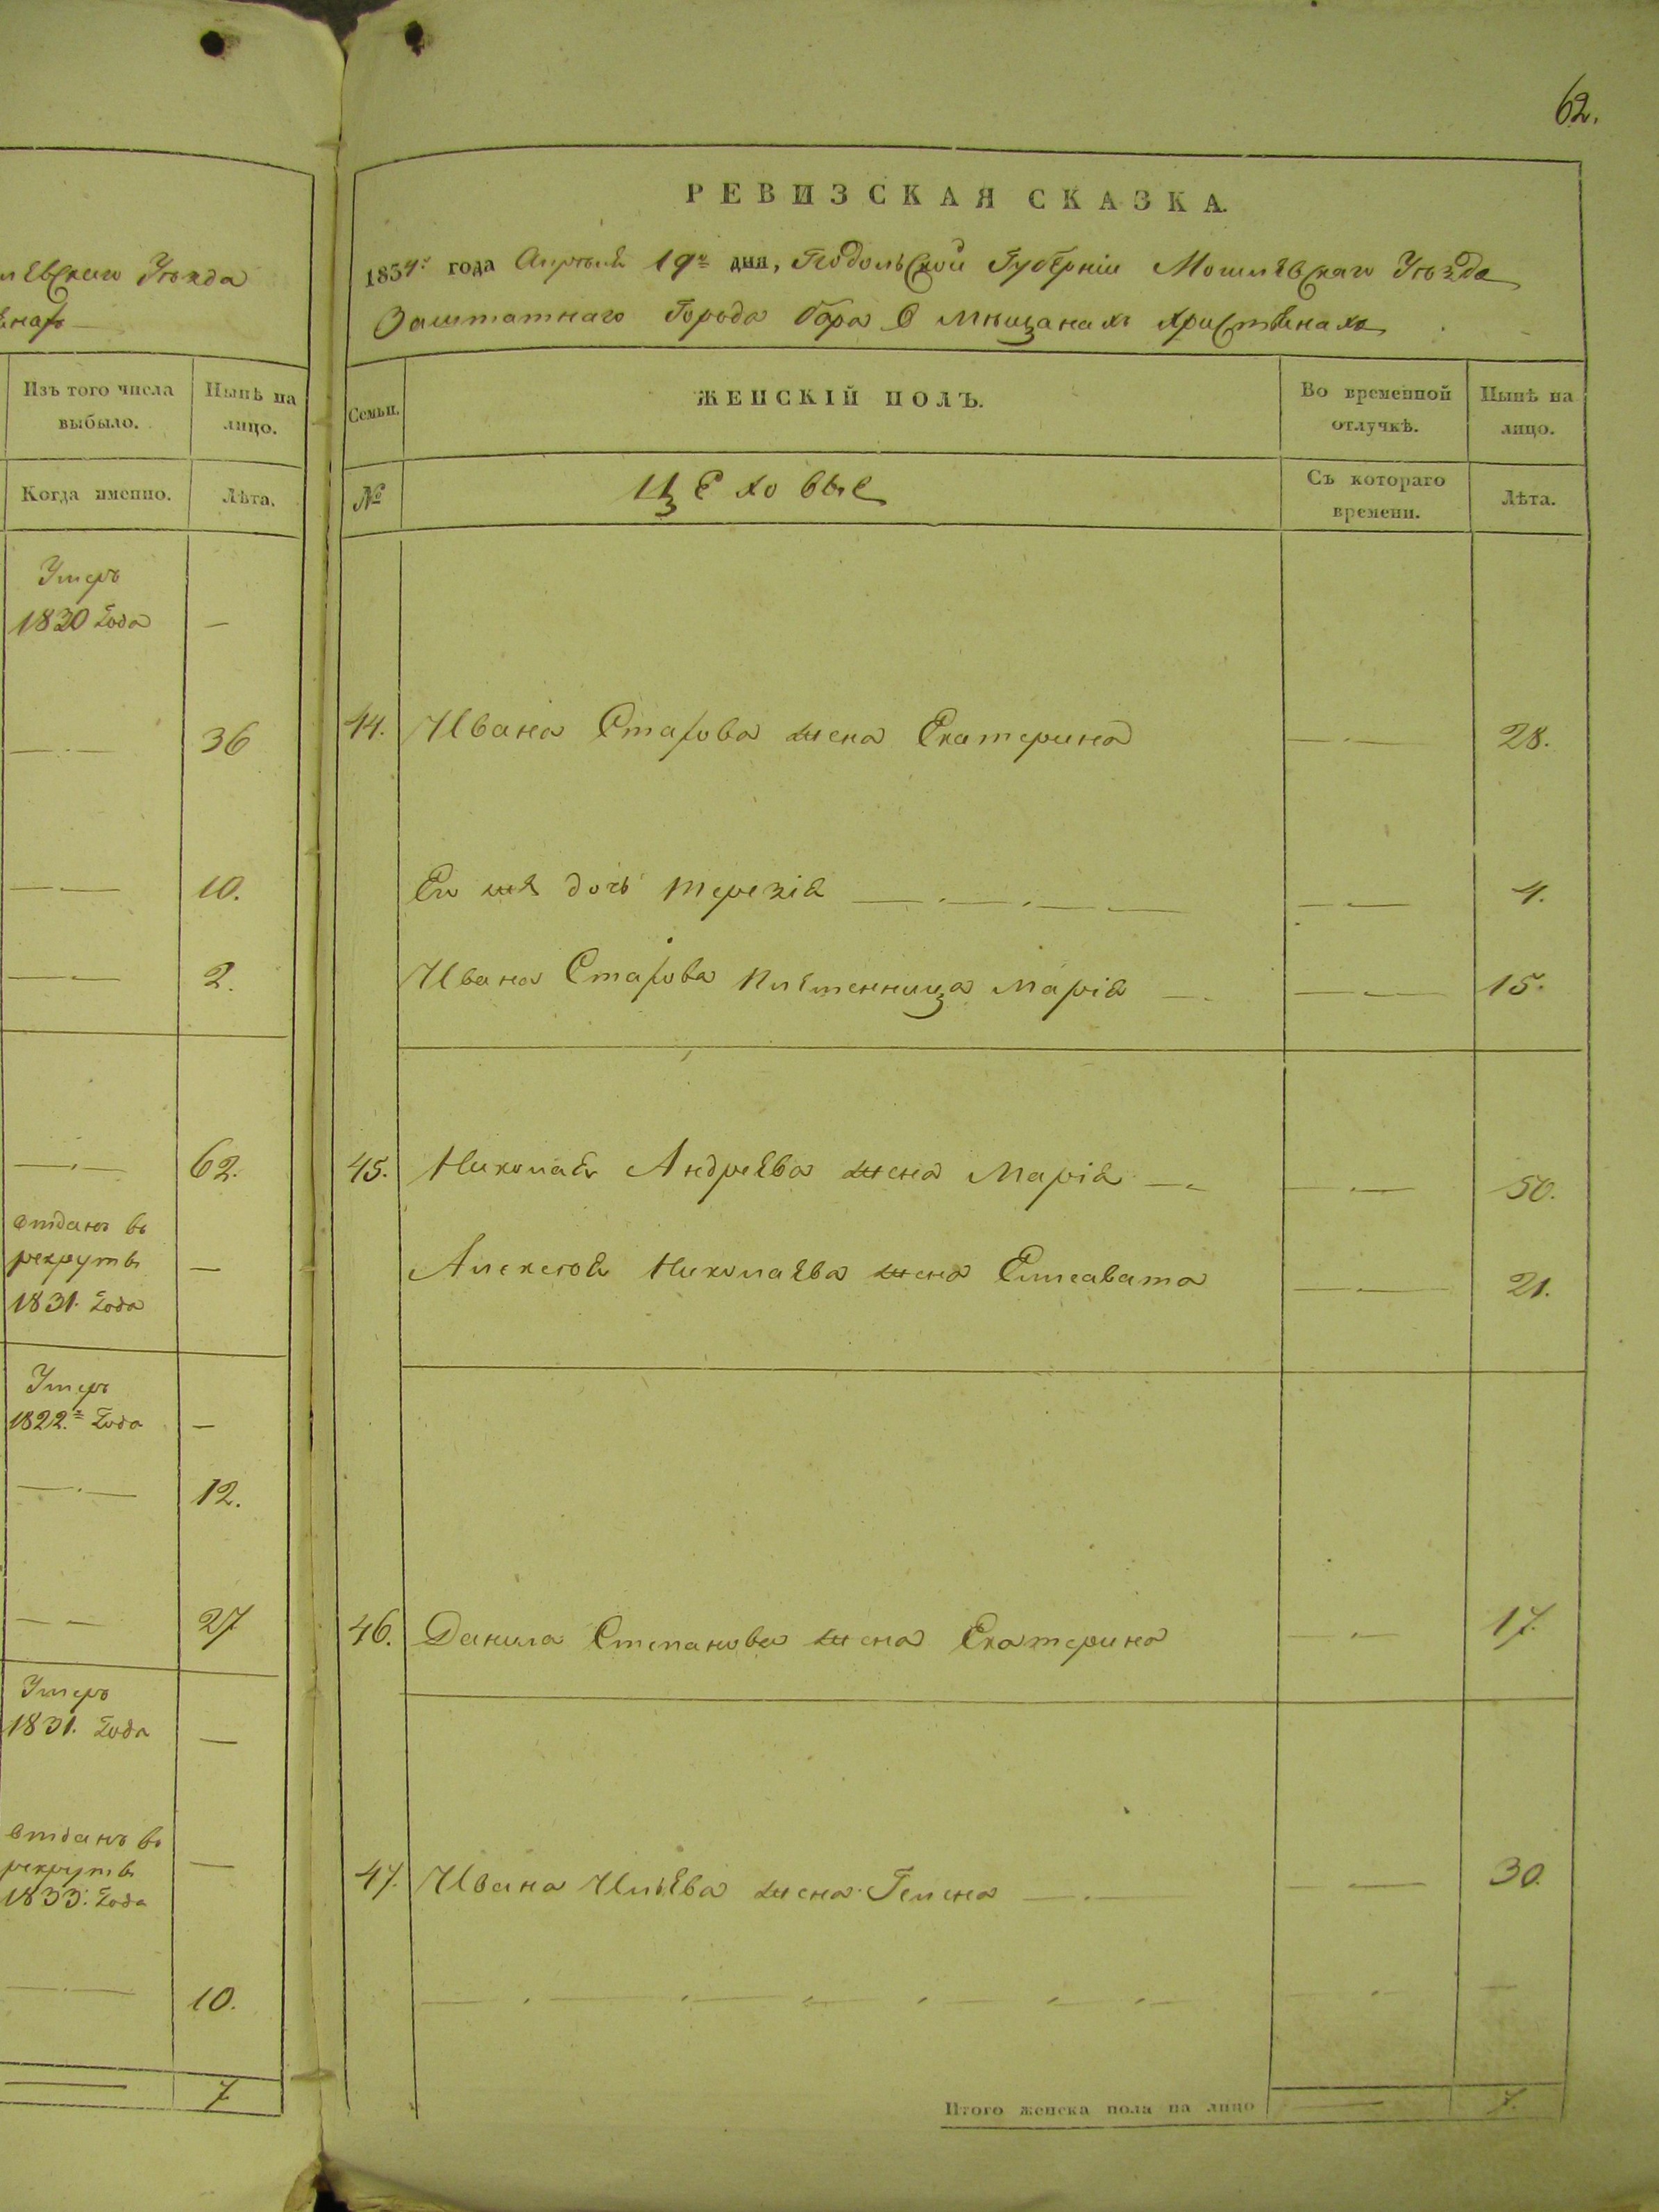 62.
левскаго Уѣзда
Изъ того числа выбыло.
Нынѣ на лицо.
Когда именно.
Лѣта.
Умеръ
1830 Года —
36
10.
2.
62.
отданъ въ
рекруты —
1831. Года
Умеръ
1822.го Года —
12.
27
Умеръ
1831. Года —
отданъ въ
рекруты —
1833. Года
10.
7
РЕВИЗСКАЯ СКАЗКА.
1834го года Апрѣля 19го дня, Подольской Губерніи Могилевскаго Уѣзда
Заштатнаго Города Бара О мѣщанахъ христіянахъ
Семьи.
ЖЕНСКІЙ ПОЛЪ.
Во временной отлучкѣ.
Нынѣ на лицо.
№
Цеховые
Съ котораго времени.
Лѣта.
44. Ивана жена Екатерина 28.
Ея же дочь Терезія 4.
Ивана племенница Марія 15.
45. Николая Андреева жена Марія 50.
Алексѣя Николаева жена Елисавета 21.
46. Данила Степанова жена Екатерина 17.
47. Ивана Ильева жена Гелена 30.
Итого женска пола на лицо 7.